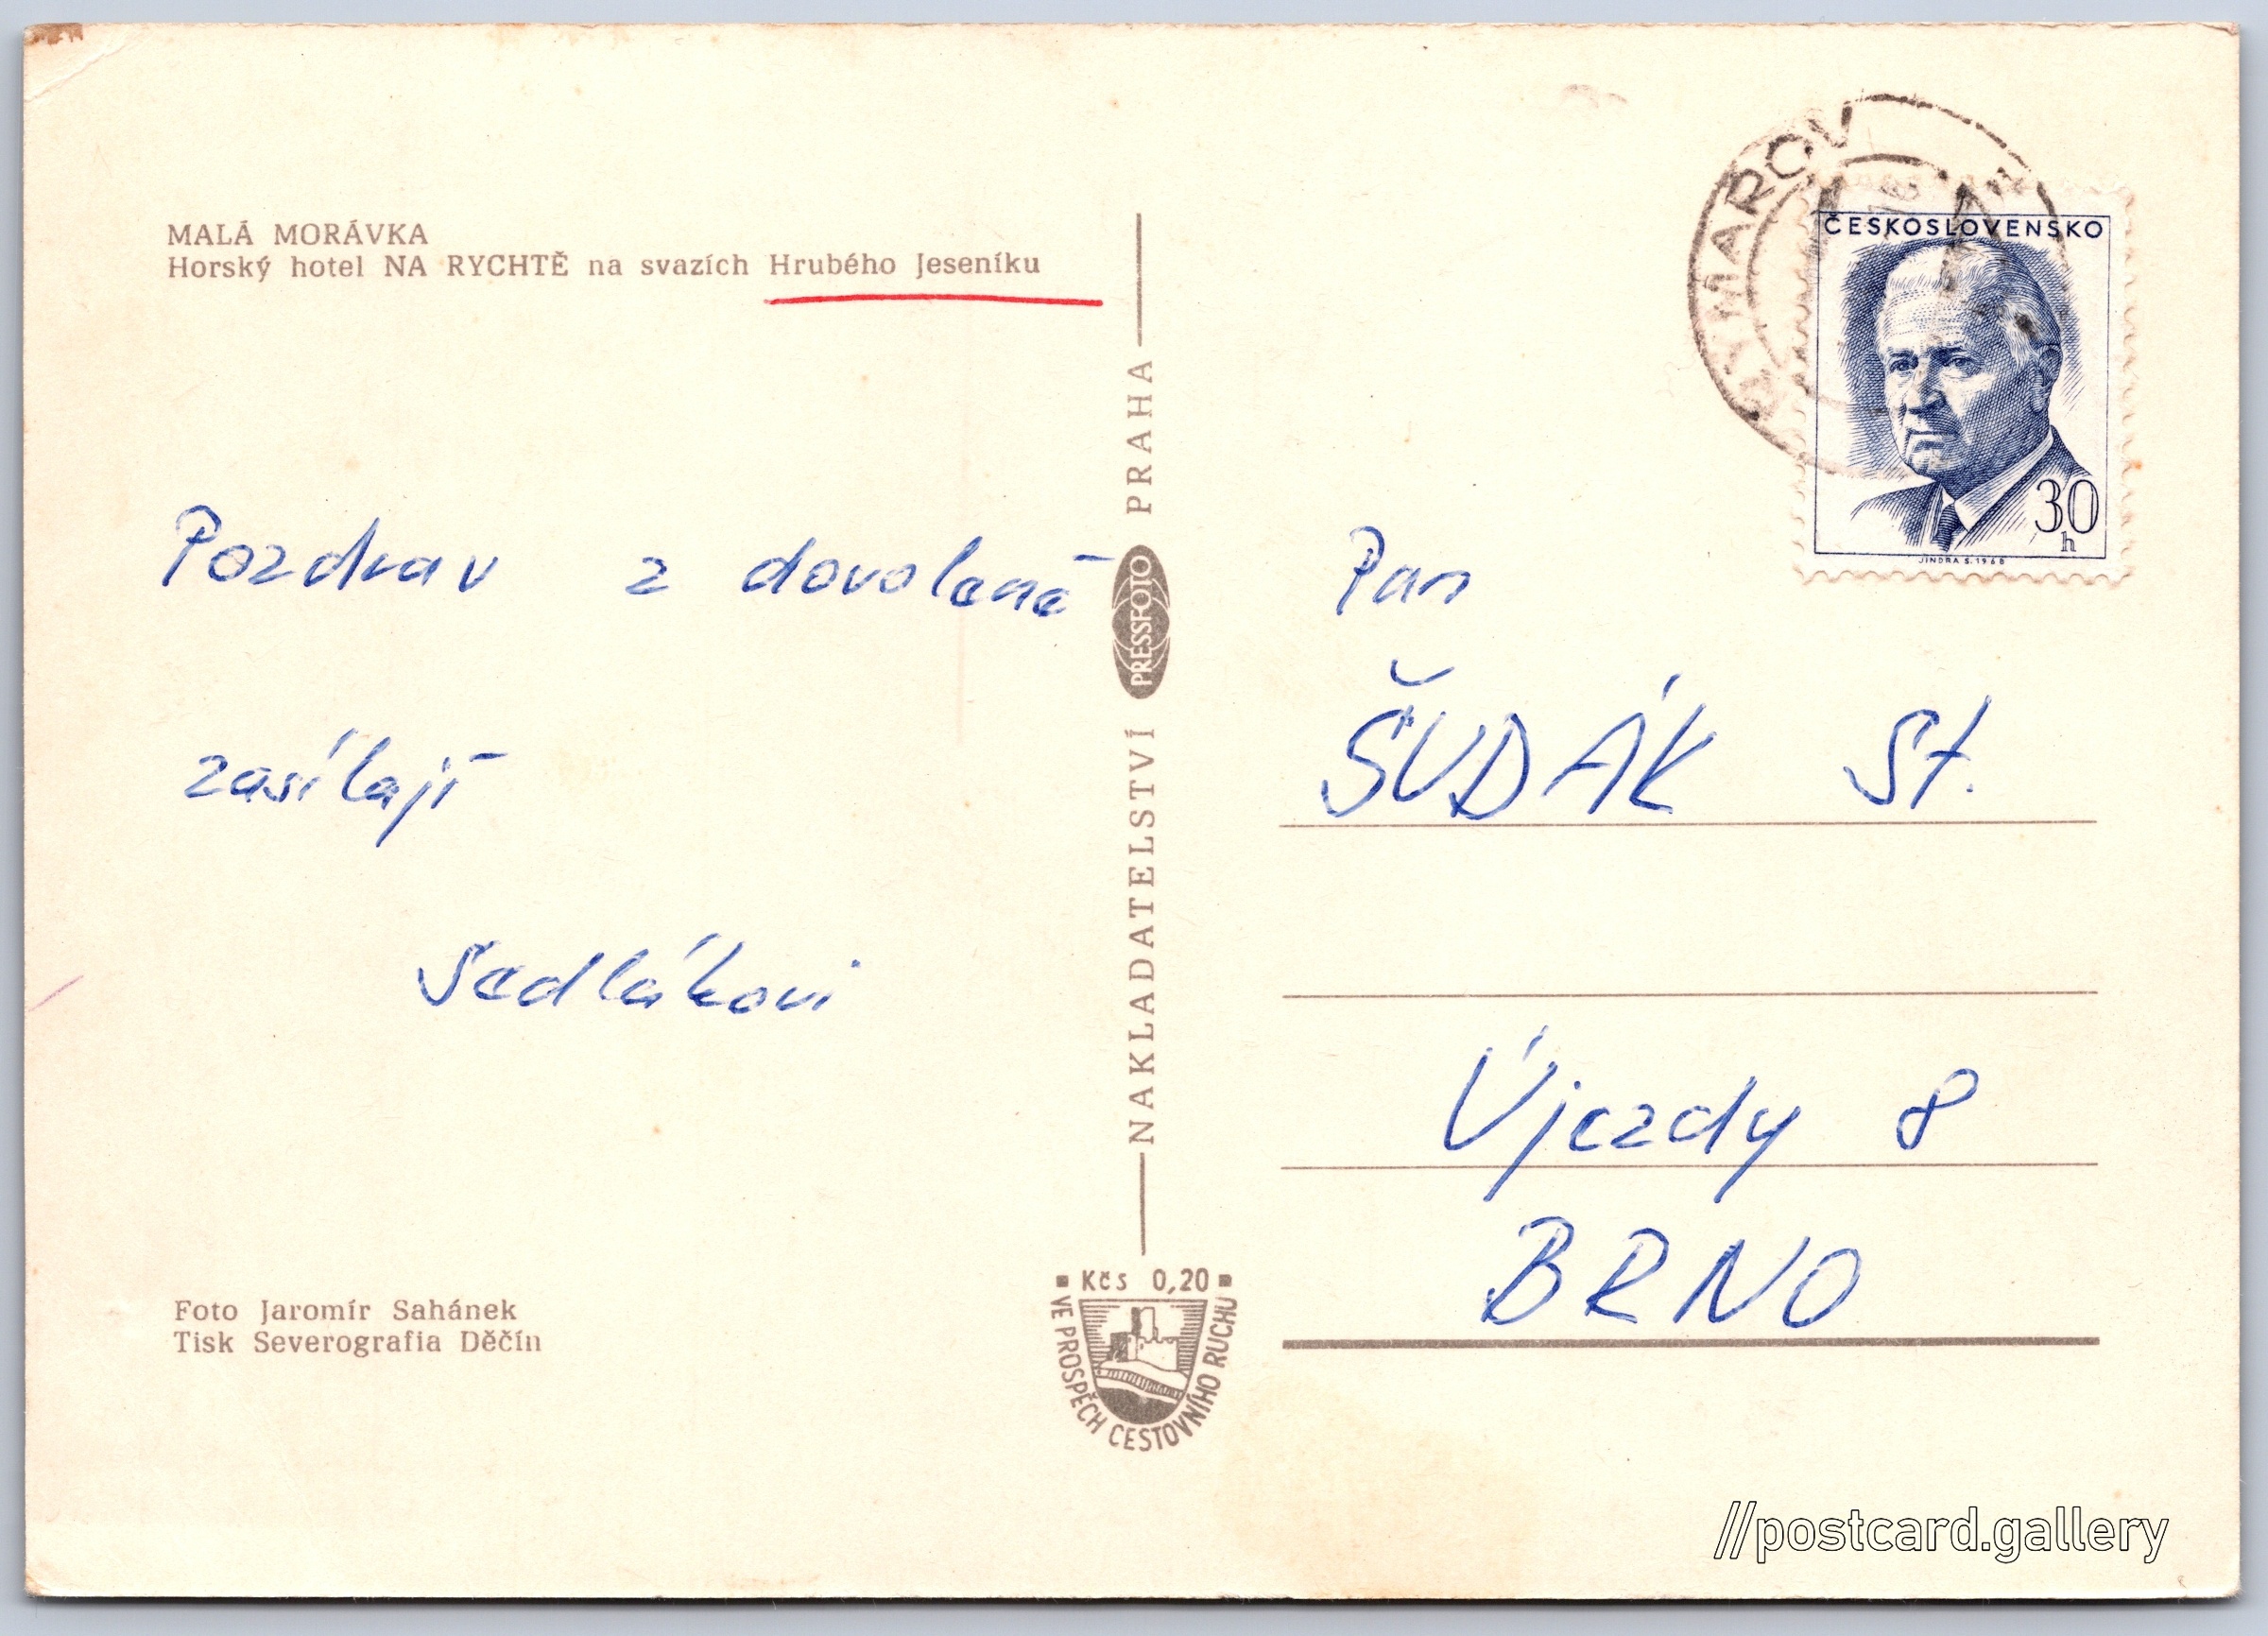 MALÁ MORÁVKA
Horský hotel NA RYCHTĚ na svazích Hrubého Jeseníku
Pozdrav z dovolené
zasílají
Sedlákovi
Foto Jaromír Sahánek
Tisk Severografia Děčín
NAKLADATELSTVÍ PRESSFOTO PRAHA
Kčs 0,20
VE PROSPĚCH CESTOVNÍHO RUCHU
ČESKOSLOVENSKO
30
h
JINDRA S. 1968
Pan
ŠUDÁK St.
Újezdy 8
BRNO
//postcard.gallery